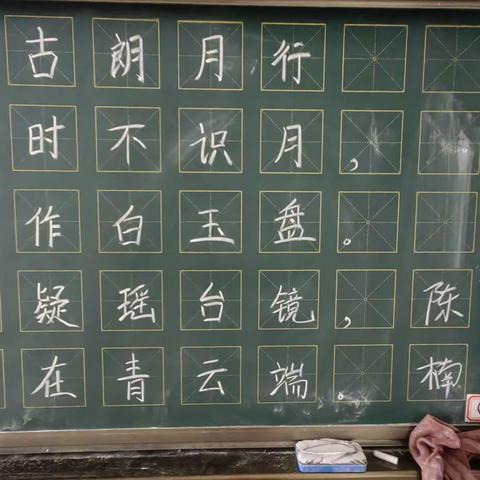 古朗月行
时不识月，
作白玉盘。
疑瑶台镜，陈
在青云端。楠